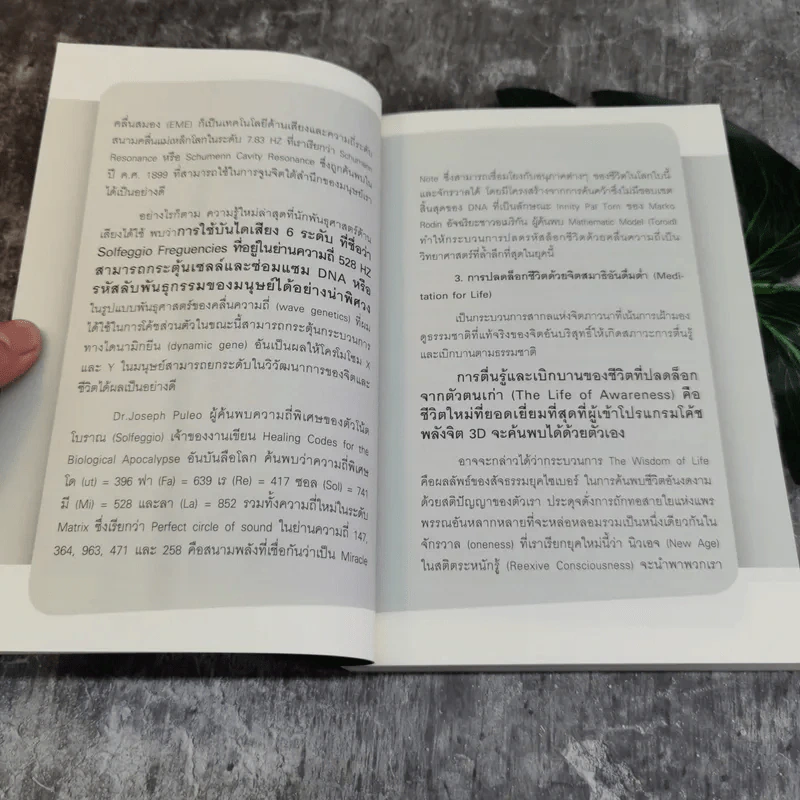 คลื่นสมอง (EME) ก็เป็นเทคโนโลยีด้านเสียงและความถี่ระดับ
สนามคลื่นแม่เหล็กโลกในระดับ 7.83 HZ ที่เราเรียกว่า Schumann
Resonance หรือ Schumenn Cavity Resonance ซึ่งถูกค้นพบใน
ปี ค.ศ. 1899 ที่สามารถใช้ในการจูนจิตใต้สำนึกของมนุษย์เรา
ได้เป็นอย่างดี
อย่างไรก็ตาม ความรู้ใหม่ล่าสุดที่นักพันธุศาสตร์ด้าน
เสียงได้ใช้ พบว่าการใช้บันไดเสียง 6 ระดับ ที่ชื่อว่า
Solfeggio Freguencies ที่อยู่ในย่านความถี่ 528 HZ
สามารถกระตุ้นเซลล์และซ่อมแซม DNA หรือ
รหัสลับพันธุกรรมของมนุษย์ได้อย่างน่าพิศวง
ในรูปแบบพันธุศาสตร์ของคลื่นความถี่ (wave genetics) ที่ผม
ได้ใช้ในการโค้ชส่วนตัวในขณะนี้สามารถกระตุ้นกระบวนการ
ทางไดนามิกยีน (dynamic gene) อันเป็นผลให้โครโมโซม X
และ Y ในมนุษย์สามารถยกระดับในวิวัฒนาการของจิตและ
ชีวิตได้ผลเป็นอย่างดี
Dr.Joseph Puleo ผู้ค้นพบความถี่พิเศษของตัวโน้ต
โบราณ (Solfeggio) เจ้าของงานเขียน Healing Codes for the
Biological Apocalypse อันบันลือโลก ค้นพบว่าความถี่พิเศษ
โด (ut) = 396 ฟา (Fa) = 639 เร (Re) = 417 ซอล (Sol) = 741
มี (Mi) = 528 และลา (La) = 852 รวมทั้งความถี่ใหม่ในระดับ
Matrix ซึ่งเรียกว่า Perfect circle of sound ในย่านความถี่ 147,
364, 963, 471 และ 258 คือสนามพลังที่เชื่อกันว่าเป็น Miracle
Note ซึ่งสามารถเชื่อมโยงกับอนุภาคต่างๆ ของชีวิตในโลกใบนี้
และจักรวาลได้ โดยมีโครงสร้างจากการค้นคว้าซึ่งไม่มีขอบเขต
สิ้นสุดของ DNA ที่เป็นลักษณะ Innity Pat Tom ของ Marko
Rodin อัจฉริยะชาวอเมริกัน ผู้ค้นพบ Mathematic Model (Toroid)
ทำให้กระบวนการปลดรหัสล็อกชีวิตด้วยคลื่นความถี่เป็น
วิทยาศาสตร์ที่ล้ำลึกที่สุดในยุคนี้
3. การปลดล็อกชีวิตด้วยจิตสมาธิอันดื่มด่ำ (Medi-
tation for Life)
เป็นกระบวนการสากลแห่งจิตภาวนาที่เน้นการเฝ้ามอง
ดูธรรมชาติที่แท้จริงของจิตอันบริสุทธิ์ให้เกิดสภาวะการตื่นรู้
และเบิกบานตามธรรมชาติ
การตื่นรู้และเบิกบานของชีวิตที่ปลดล็อก
จากตัวตนเก่า (The Life of Awareness) คือ
ชีวิตใหม่ที่ยอดเยี่ยมที่สุดที่ผู้เข้าโปรแกรมโค้ช
พลังจิต 3D จะค้นพบได้ด้วยตัวเอง
อาจจะกล่าวได้ว่ากระบวนการ The Wisdom of Life
คือผลลัพธ์ของสัจธรรมยุคไซเบอร์ ในการค้นพบชีวิตอันงดงาม
ด้วยสติปัญญาของตัวเรา ประดุจดั่งการถักทอสายใยแห่งแพร
พรรณอันหลากหลายที่จะหล่อหลอมรวมเป็นหนึ่งเดียวกันใน
จักรวาล (oneness) ที่เราเรียกยุคใหม่นี้ว่า นิวเอจ (New Age)
ในสติตระหนักรู้ (Reexive Consciousness) จะนำพาพวกเรา